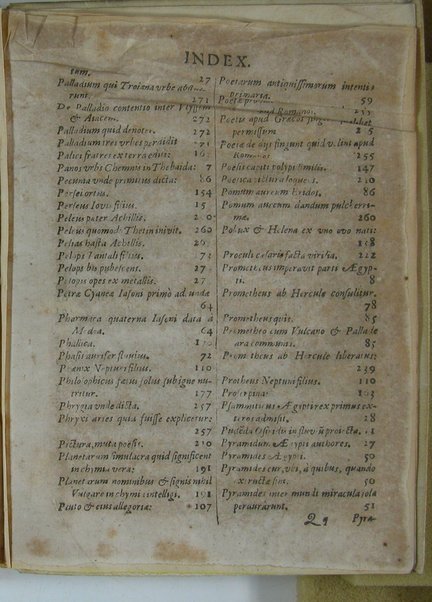 INDEX.
tum. 27
Palladium qui Troiana vrbe
runt. 271
De Palladio contentio inter Vlyssem
& Aiacem. 272
Palladium quid denotet. 272
Palladium tres vrbes perdidit
Palici fratres ex terra editi:
Panos vrbs Chemnis in Thebaida: 7
Pecunia vnde primùm dicta: 86
Persei ortus. 154
Perseus Iouis filius.
Peleus pater Achillis.
Peleus quomodo Thetin inuit. 260
Peliæ hasta Achillis.
Pelops Tantali filius:
Pelops bis pubescens.
Pelopis opes ex metallis. 27
Petræ Cyaneæ Iasoni primò ad
64
Pharmaca quaterna Iasoni data à
Medea. 64
Phallica.
Phasis aurifer fluuius. 72
Phœnix Neptuni filius. 110
Philosophicus fætus solus sub igne nu-
tritur. 177
Phrygia vnde dicta. 257
Phryxi aries quis fuisse explicetur:
257
Pictura, muta poësis. 210
Planetarum simulacra quid significent
in chymia vera: 191
Planetarum nominibus & signis nihil
Vulgare in chymia intelligi. 191
Pluto & eius allegoria: 107
Poetarum antiquissimorum intentio
primaria. 59
Poetæ
apud Romanos.
Poetis apud Græcos
permissum
Poetæ de diis fingunt quid v. lini apud
Romanos 255
Poesis capiti polypi similis. 147
Poesis pictura loquens. 210
Pomum aureum Eridos. 86
Pomum aureum dandum pulcherri-
mæ. 260
Pollux & Helena ex vno ouo nati:
Proculi celaris facta virilia. 212
Prometheus imperauit parti Ægyp-
ti. 8
Prometheus ab Hercule consulitur.
78
Prometheus quit. 85
Prometheo cum Vulcano & Pallade
ara communis. 85
Prometheus ab Hercule liberatus:
239
Protheus Neptuni filius. 110
Proserpina: 103
Psammiticus Ægypti rex primus ex-
teros admisit. 28
Pudenda Osiridis in fluuium proiecta. 21
Pyramidum Ægypti authores. 27
Pyramides Ægypti. 50
Pyramides cur, vbi, à quibus, quando
exstructæ sint. 50
Pyramides inter mundi miracula sola
perdurarunt. 51
Qq Pyra-